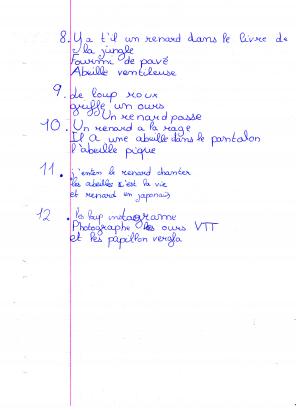 8. Y a t'il un renard dans le livre de
la jungle
Fourmi de pavé
Abeille ventileuse
9. Le loup roux
griffe un ours
Un renard passe
10. Un renard a la rage
Il a une abeille dans le pantalon
l'abeille pique
11. j'enten le renard chanter
les abeilles c'est la vie
et renard en japonais
12. le loup
Photographe les ours VTT
et les papillon